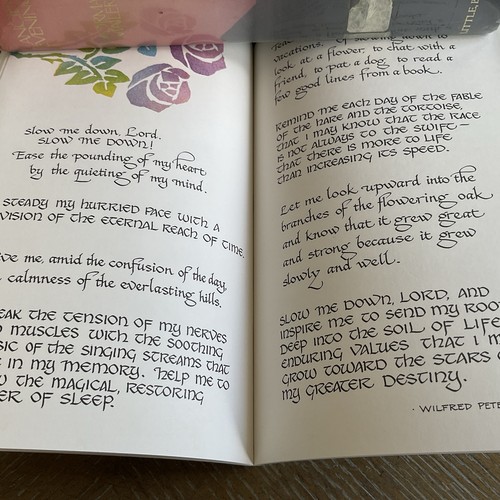 slow me down, Lord.
SLOW ME DOWN!
Ease the pounding of my heart
by the quieting of my mind.
STEADY MY HURRIED PACE WITH A
VISION OF THE ETERNAL REACH OF TIME.
ve me, amid the confusion of the day,
calmness of the everlasting hills.
EAK THE TENSION OF MY NERVES
MUSCLES WITH THE SOOTHING
SIC OF THE SINGING STREAMS THAT
E IN MY MEMORY. HELP ME TO
W THE MAGICAL, RESTORING
ER OF SLEEP.
vacations. Of slowing down to
look at a flower, to chat with a
friend, to pat a dog, to read a
few good lines from a book.
REMIND ME EACH DAY OF THE FABLE
OF THE HARE AND THE TORTOISE,
THAT I MAY KNOW THAT THE RACE
IS NOT ALWAYS TO THE SWIFT—
THAT THERE IS MORE TO LIFE
THAN INCREASING ITS SPEED.
Let me look upward into the
branches of the flowering oak
and know that it grew great
and strong because it grew
slowly and well.
SLOW ME DOWN, LORD, AND
INSPIRE ME TO SEND MY ROO
DEEP INTO THE SOIL OF LIFE
ENDURING VALUES THAT I M
GROW TOWARD THE STARS O
MY GREATER DESTINY.
· WILFRED PETE